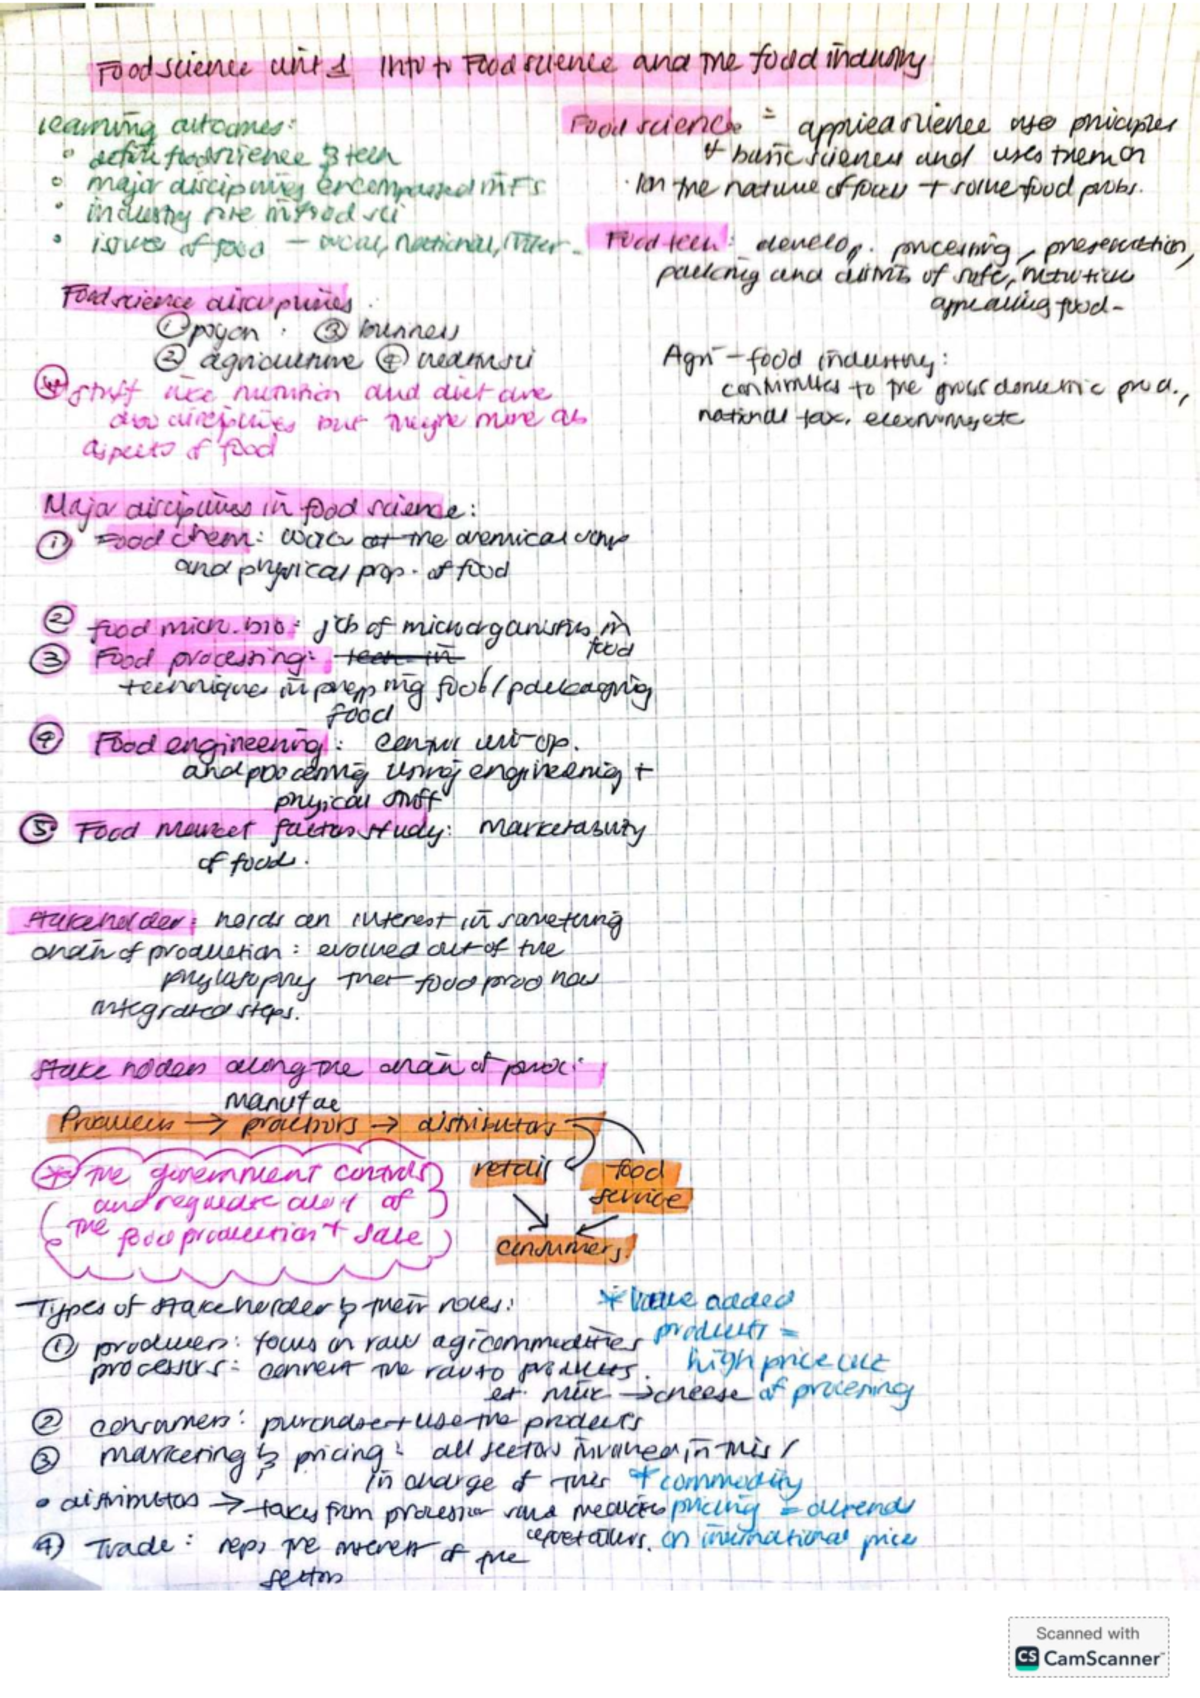 Food science unit 1 Intro to Food science and the food industry
Learning outcomes:
• define food science & tech
• major disciplines encompassed in FS
• industry role in food sci
• issues of food – local, national, inter.
Food science = applied science uses principles
of basic sciences and uses them on
the nature of food + solve food probs.
Food tech: develop. processing, preservation,
packing and of safe, nutritious
appealing food.
Food science disciplines.
③ business
② agriculture ④ health sci
stuff like nutrition and diet are
also disciplines but they're more as
aspects of food
Agri – food industry:
contributes to the gross domestic prod.,
national tax, economy etc
Major disciplines in food science:
① Food chem: the chemical
and physical prop. of food
② food micr. bio: of microorganisms in
food
③ Food processing: tech in
techniques in prepping food / packaging
food
④ Food engineering: unit op.
and processing using engineering +
physical stuff
⑤ Food market factors study: marketability
of food.
Stakeholder: holds an interest in something
chain of production: evolved out of the
phylosophy that food prod has
integrated steps.
Stake holders along the chain of proc:
manufac
Producers → processors → distributors
* the government controls
and regulate alot of
the food production + sale
retail
food
service
consumers
Types of stakeholder & their roles:
① producers: focus on raw agri commodities
processors: convert the raw to products.
ex. milk → cheese
* Value added
products =
high price
of processing
② consumers: purchase + use the products
③ marketing & pricing: all sectors involved in this /
in charge of this
* commodity
pricing = depends
on international price
• distributors → takes from processor and
retailers.
④ Trade: reps the interest of the
sectors
Scanned with
CS CamScanner